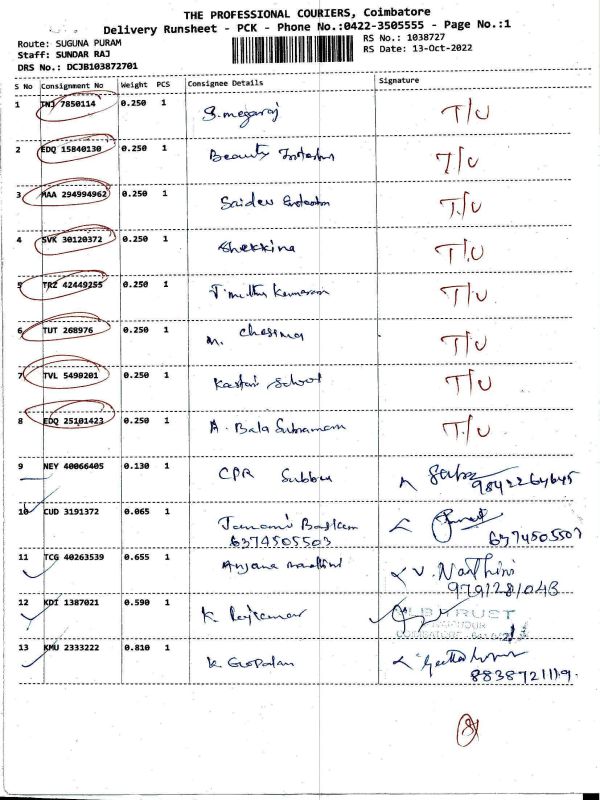 THE PROFESSIONAL COURIERS, Coimbatore
Delivery Runsheet - PCK - Phone No.:0422-3505555 - Page No.:1
Route: SUGUNA PURAM
RS No.: 1038727
Staff: SUNDAR RAJ
RS Date: 13-Oct-2022
DRS No.: DCJB103872701
S No Consignment No Weight PCS Consignee Details Signature
1 TNJ 7850114 0.250 1 S. megaraj T/U
2 EDQ 15840130 0.250 1 Beauty T/U
3 MAA 294994962 0.250 1 Saidev T/U
4 SVK 30120372 0.250 1 Shekkina T/U
5 TRZ 42449255 0.250 1 T/U
6 TUT 268976 0.250 1 M. T/U
7 TVL 5490201 0.250 1 Kasturi School T/U
8 EDQ 25101423 0.250 1 A. Bala Subramani T/U
9 NEY 40066405 0.130 1 CPR Subbu
9842264645
10 CUD 3191372 0.065 1 Janani Baskern
6374505503 6374505507
11 TCG 40263539 0.655 1 Anjana V. Nanthini
979128104B
12 KDI 1387021 0.590 1 K. Rajkumar TRUST
13 KMU 2333222 0.810 1 K. Gopalan
8838721119.
8